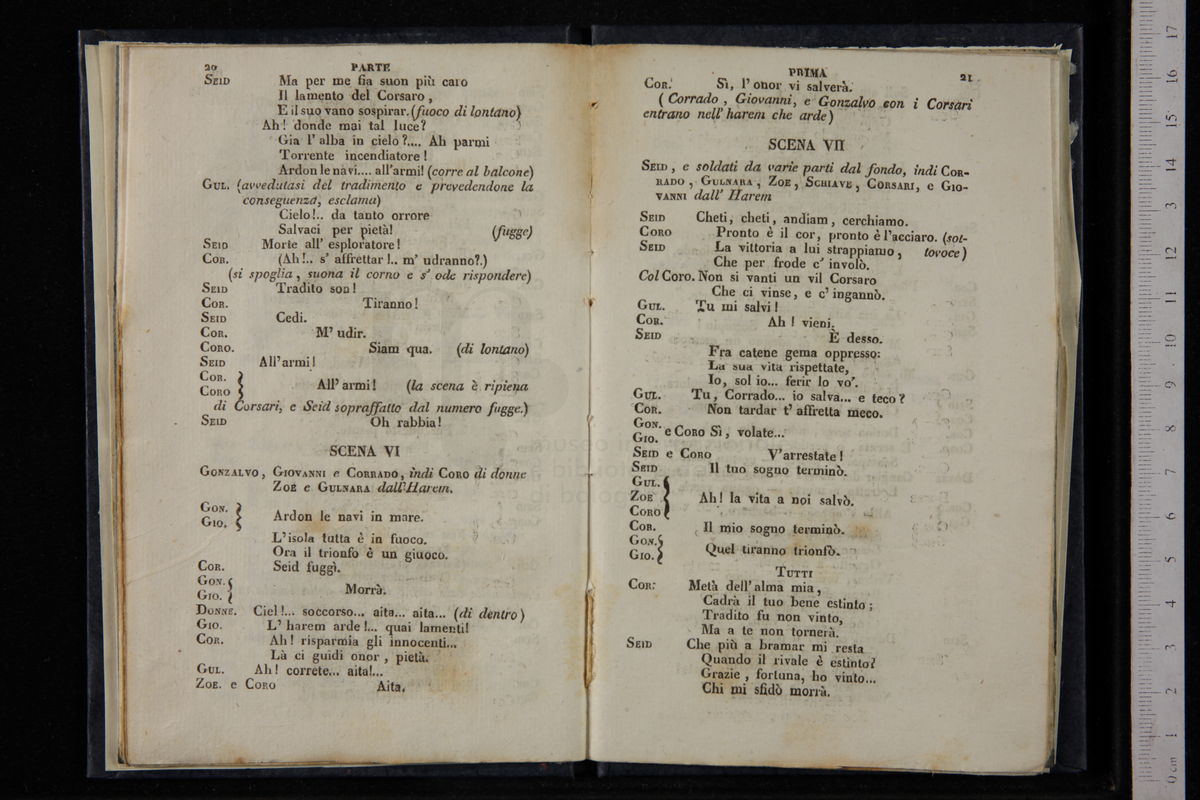 20 PARTE
SEID Ma per me fia suon più caro
Il lamento del Corsaro,
E il suo vano sospirar. (fuoco di lontano)
Ah! donde mai tal luce?
Gia l' alba in cielo?.... Ah parmi
Torrente incendiatore!
Ardon le navi.... all'armi! (corre al balcone)
GUL. (avvedutasi del tradimento e prevedendone la
conseguenza, esclama)
Cielo!.. da tanto orrore
Salvaci per pietà! (fugge)
SEID Morte all' esploratore!
COR. (Ah!.. s' affrettar!.. m' udranno?.)
(si spoglia, suona il corno e s' ode rispondere)
SEID Tradito son!
COR. Tiranno!
SEID Cedi.
COR. M' udir.
CORO. Siam qua. (di lontano)
SEID All'armi!
COR. }
CORO } All' armi! (la scena è ripiena
di Corsari, e Seid sopraffatto dal numero fugge.)
SEID Oh rabbia!
SCENA VI
GONZALVO, GIOVANNI e CORRADO, indi CORO di donne
ZOE e GULNARA dall'Harem.
GON. }
GIO. } Ardon le navi in mare.
L'isola tutta è in fuoco.
Ora il trionfo è un giuoco.
COR. Seid fuggì.
GON. {
GIO. { Morrà.
DONNE. Ciel!... soccorso... aita... aita... (di dentro)
GIO. L' harem arde!... quai lamenti!
COR. Ah! risparmia gli innocenti...
Là ci guidi onor, pietà.
GUL. Ah! correte... aita!...
ZOE. e CORO Aita.
PRIMA 21
COR. Sì, l' onor vi salverà.
(Corrado, Giovanni, e Gonzalvo con i Corsari
entrano nell' harem che arde)
SCENA VII
SEID, e soldati da varie parti dal fondo, indi COR-
RADO, GULNARA, ZOE, SCHIAVE, CORSARI, e GIO-
VANNI dall' Harem
SEID Cheti, cheti, andiam, cerchiamo.
CORO Pronto è il cor, pronto è l'acciaro. (sot-
SEID La vittoria a lui strappiamo, tovoce)
Che per frode c' involò.
Col CORO. Non si vanti un vil Corsaro
Che ci vinse, e c' ingannò.
GUL. Tu mi salvi!
COR. Ah! vieni.
SEID È desso.
Fra catene gema oppresso:
La sua vita rispettate,
Io, sol io... ferir lo vo'.
GUL. Tu, Corrado... io salva... e teco?
COR. Non tardar t' affretta meco.
GON.
GIO. e CORO Sì, volate...
SEID e CORO V'arrestate!
SEID Il tuo sogno terminò.
GUL. {
ZOE { Ah! la vita a noi salvò.
CORO {
COR. Il mio sogno terminò.
GON. {
GIO. { Quel tiranno trionfò.
TUTTI
COR. Metà dell' alma mia,
Cadrà il tuo bene estinto;
Tradito fu non vinto,
Ma a te non tornerà.
SEID Che più a bramar mi resta
Quando il rivale è estinto?
Grazie, fortuna, ho vinto...
Chi mi sfidò morrà.
0 cm 1 2 3 4 5 6 7 8 9 10 11 12 13 14 15 16 17